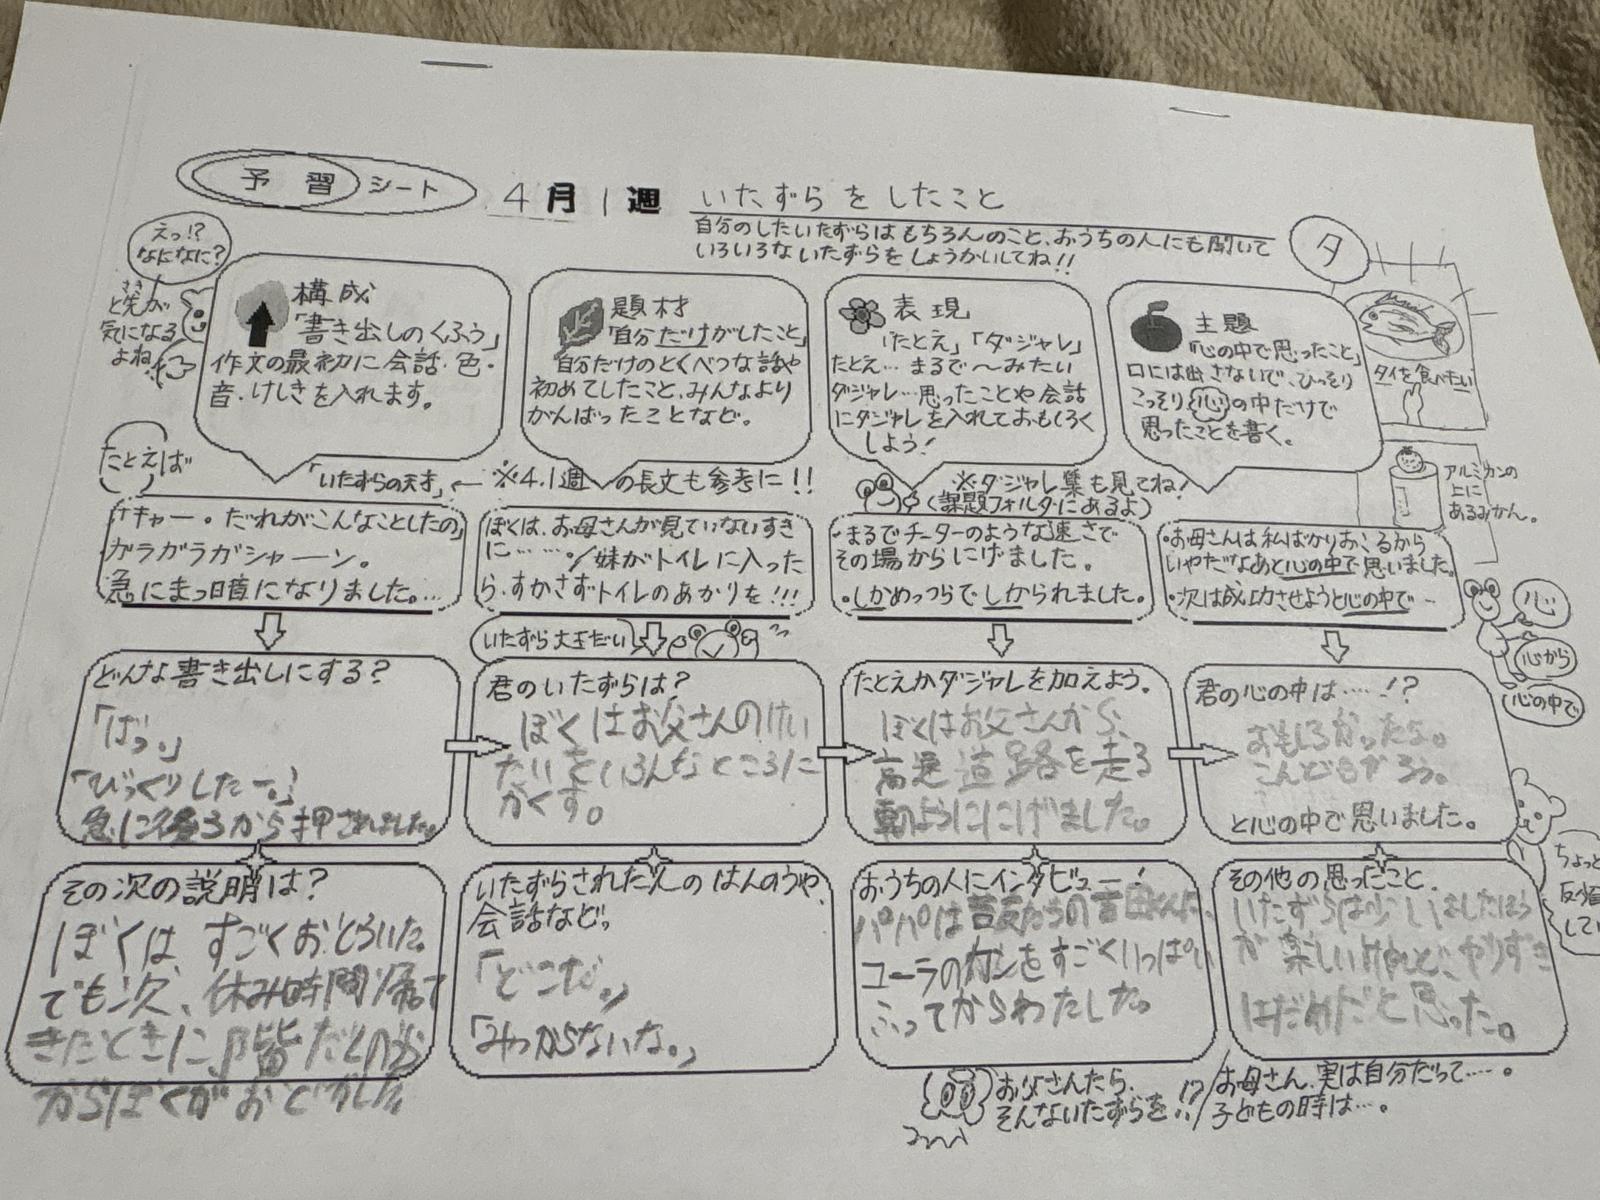 予習シート
4月1週 いたずらをしたこと
自分のしたいたずらはもちろんのこと、おうちの人にも聞いて
いろいろないたずらをしょうかいしてね!!
えっ!?
なになに?
と先が
さき
気になる
よね。
構成
「書き出しのくふう」
作文の最初に会話・色・
音・けしきを入れます。
題材
「自分だけがしたこと」
自分だけのとくべつな話や
初めてしたこと、みんなより
がんばったことなど。
表現
「たとえ」「ダジャレ」
たとえ…まるで〜みたい
ダジャレ…思ったことや会話
にダジャレを入れておもしろく
しよう!
主題
「心の中で思ったこと」
口には出さないで、ひっそり
こっそり心の中だけで
思ったことを書く。
タ
タイを食べたい
アルミカンの
上に
あるみかん。
たとえば
「いたずらの天才」←※4.1週の長文も参考に!!
※ダジャレ集も見てね!
(課題フォルダにあるよ)
「キャー。だれがこんなことしたの」
ガラガラガシャーン。
急にまっ暗になりました。…
ぼくは、お母さんが見ていないすき
に……。/妹がトイレに入った
ら、すかさずトイレのあかりを!!!
・まるでチーターのような速さで
その場からにげました。
・しかめっつらでしかられました。
・お母さんは私ばかりおこるから
いやだなあと心の中で思いました。
・次は成功させようと心の中で…
心
心から
心の中で
いたずら大王だい
どんな書き出しにする?
「ばっ。」
「びっくりしたー。」
急に後ろから押されました。
君のいたずらは?
ぼくはお父さんのけい
たいをいろんなところに
かくす。
たとえかダジャレを加えよう。
ぼくはお父さんから、
高速道路を走る
車のようににげました。
君の心の中は……!?
おもしろかったな。
こんどもやろう。
と心の中で思いました。
その次の説明は?
ぼくはすごくおどろいた。
でも次、休み時間帰って
きたときに階だんの
からぼくがおどかした
いたずらされた人のはんのうや、
会話など。
「どこだ。」
「みつからないな。」
おうちの人にインタビュー!
パパは昔友だちの
コーラのカンをすごくいっぱい
ふってからわたした。
その他の思ったこと、
いたずらは少ししましたほう
が楽しいけれど、やりすぎ
はだめだと思った。
ちょっと
お父さんたら、
そんないたずらを!?
お母さん、実は自分だって……。
子どもの時は…。